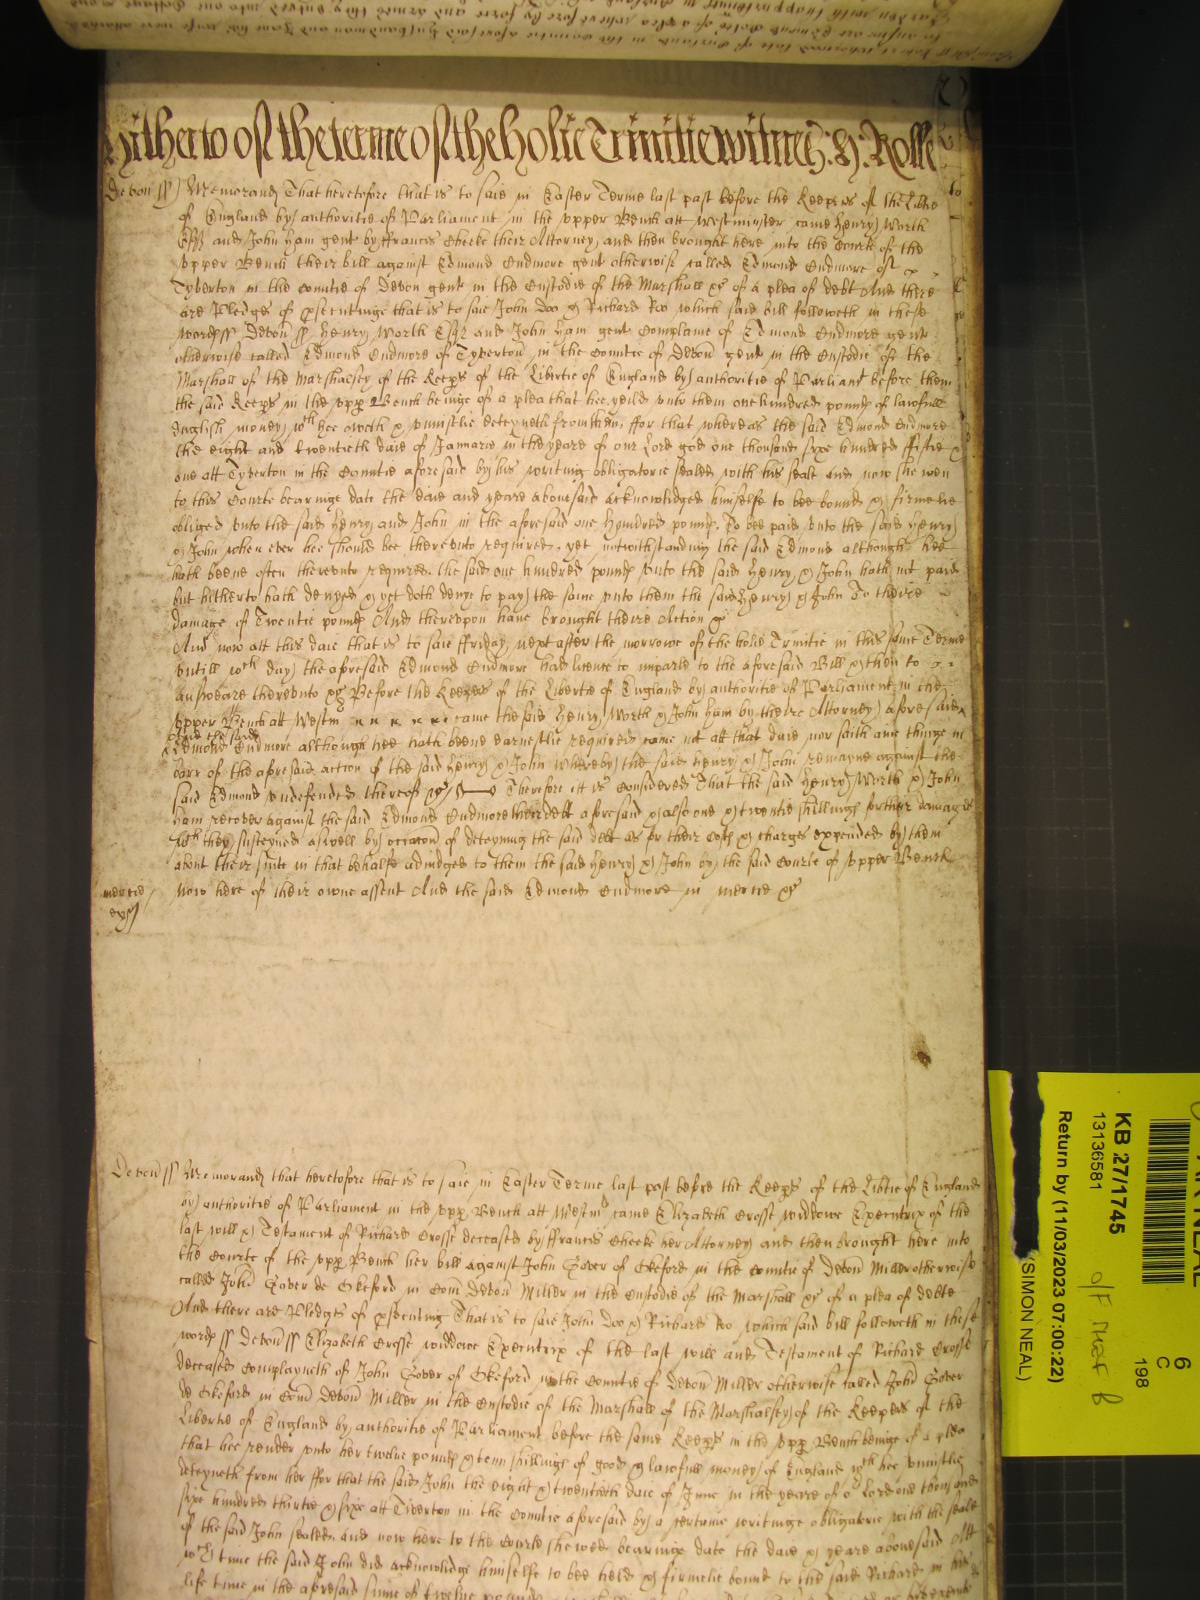 Hitherto of the terme of the holie Trinitie witnes: H: Rolle
Devon ss Memorand That heretofore that is to saie in Easter Terme last past before the Keepers of the Libtie
of England by authoritie of Parliament in the upper Bench att Westminster came Henry Worth
Esqr and John Ham gent by ffrancis Cheeke their Attorney and then brought here into the Courte of the
upper Bench their bill against Edmond Cudmore gent otherwise called Edmond Cudmore of
Tyverton in the Countie of Devon gent in the Custodie of the Marshall &c of a plea of debt And there
are Pledges of psecutinge that is to saie John Doo & Richard Roo which said bill followeth in these
wordes ss Devon ss Henry Worth Esqr and John Ham gent Complaine of Edmond Cudmore gent
otherwise called Edmond Cudmore of Tyverton in the Countie of Devon gent in the Custodie of the
Marshall of the Marshalsey of the Keeps of the Libertie of England by authoritie of Parliamt before them
the said Keeps in the upp Bench beinge of a plea that hee yeild unto them one hundred pounds of lawfull
English money wch hee oweth & uniustlie deteyneth from them, ffor that whereas the said Edmond Cudmore
the eight and twentieth daie of Januarie in the yeare of our Lord god one thousand sixe hundred fiftie &
one att Tyverton in the Countie aforesaid by his writing obligatorie sealed with his seale and now shewen
to this Courte bearinge date the daie and yeare abovesaid acknowledged himselfe to bee bound & firmelie
obliged unto the said Henry and John in the aforesaid one hundred pounds, To bee paid unto the said Henry
& John when ever hee should bee thereunto required, yet notwithstanding the said Edmond although hee
hath beene often thereunto required, the said one hundred pounds unto the said Henry & John hath not paid
but hitherto hath denyed & yet doth denye to pay the same unto them the said Henry & John To theire
damage of Twentie pounds And thereupon have brought theire Action &c
And now att this daie that is to saie ffriday next after the morrowe of the holie Trinitie in this same Terme
untill wch day the aforesaid Edmond Cudmore had licence to imparle to the aforesaid Bill & then to
answeare thereunto &c Before the Keepers of the Libertie of England by authoritie of Parliament in the
upper Bench att Westm came the said Henry Worth & John Ham by theire Attorney aforesaid
And the said
Edmond Cudmore although hee hath beene earnestlie required came not att that daie nor saith anie thinge in
barr of the aforesaid action of the said Henry & John whereby the said Henry & John remayne against the
said Edmond undefended thereof &c Therefore it is considered That the said Henry Worth & John
Ham recover against the said Edmond Cudmore their debt aforesaid & also one & twentie shillings for their damages
wch they susteyned aswell by occasion of deteyning the said debt as for their Costs & charges expended by them
about their suite in that behalfe adiudged to them the said Henry & John by the said Courte of upper Bench
mercie
Now here of their owne assent And the said Edmond Cudmore in mercie &c
Devon ss Memorand that heretofore that is to saie in Easter Terme last past before the Keeps of the Libtie of England
by authoritie of Parliament in the upp Bench att Westm came Elizabeth Crosse widdowe Executrix of the
last will & Testament of Richard Crosse deceased by ffrancis Cheeke her Attorney and then brought here into
the Courte of the upp Bench her bill against John Gover of Okeford in the Countie of Devon Miller otherwise
called John Gover de Okeford in Com Devon Miller in the Custodie of the Marshall &c of a plea of debte
And there are Pledges of psecuting That is to saie John Doo & Richard Roo which said bill followeth in these
words ss Devon ss Elizabeth Crosse widdowe Executrix of the last will and Testament of Richard Crosse
deceased Complayneth of John Gover of Okeford in the Countie of Devon Miller otherwise called John Gover
de Okeford in Com Devon Miller in the Custodie of the Marshall of the Marshalsey of the Keepers of the
Libertie of England by authoritie of Parliament before the same Keeps in the upp Bench beinge of a plea
that hee render unto her twelve pounds & tenn shillings of good & lawfull money of England wch hee uniustlie
deteyneth from her ffor that the said John the eight & twentieth daie of June in the yeare of or Lord one thousand
sixe hundred thirtie & sixe att Tiverton in the Countie aforesaid by a certaine writinge obligatorie with the seale
of the said John sealed and now here to the Courte shewed bearinge date the daie & yeare abovesaid Att
wch time the said John did acknowledge himselfe to bee held & firmelie bound to the said Richard in his
life time in the aforesaid summe of twelve pounds
KB 27/1745
13136581
Return by (11/03/2023 07:00:22)
(SIMON NEAL)
6
C
198